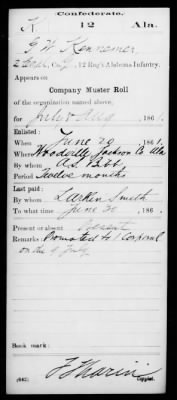 Confederate.
K 12 Ala.
G. W. Kennemer
2 Corpl, Co. , 12 Reg't Alabama Infantry.
Appears on
Company Muster Roll
of the organization named above,
for July & Aug, 1861.
Enlisted:
When June 20, 1861.
Where Woodville Jackson Co Ala
By whom
Period Twelve months
Last paid:
By whom Larkin Smith
To what time June 30, 186 .
Present or absent Present
Remarks: Promoted to 1 Corporal
on the 9 July
Book mark:
(642) Copyist.